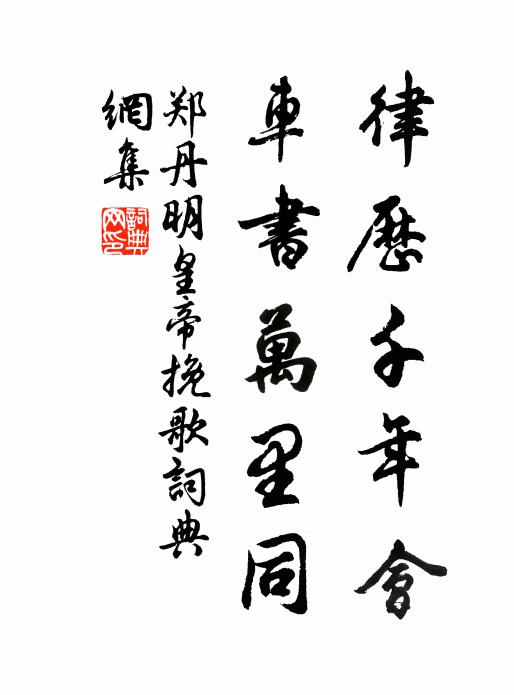 律歷千年會
車書萬里同
郑丹明皇帝挽歌詞典
網集
詞典網印